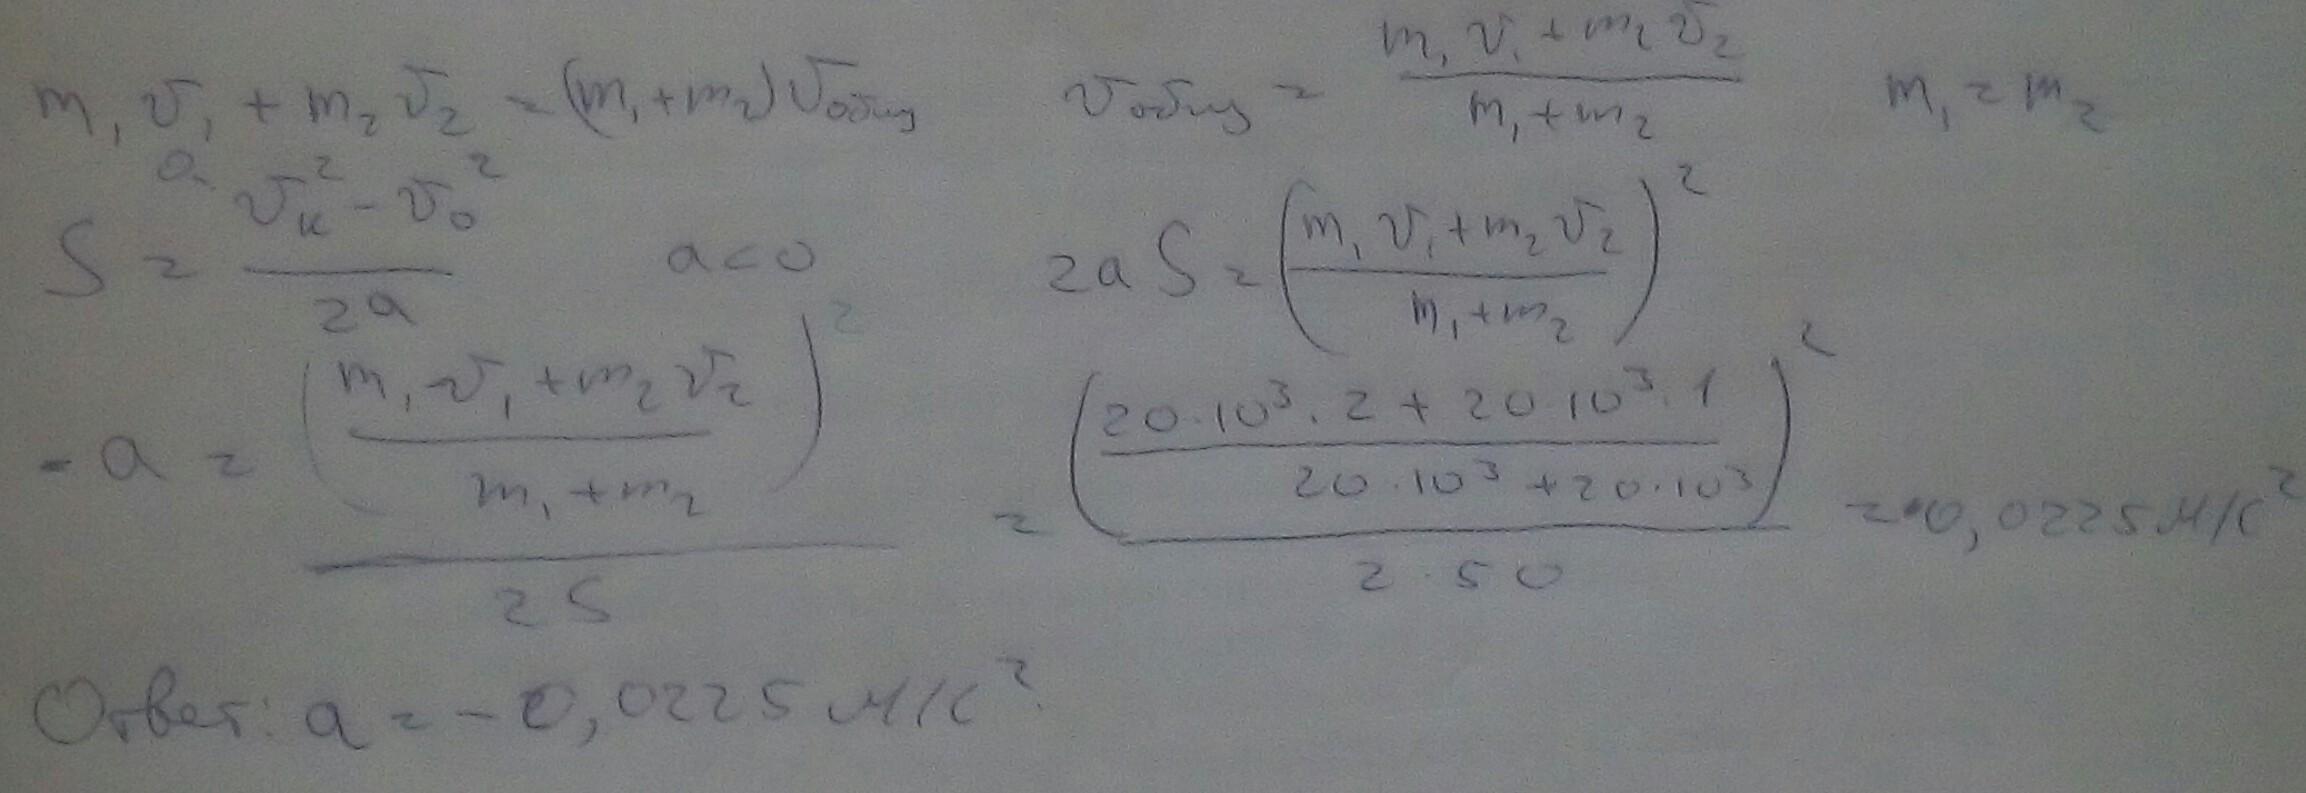 m₁ v₁ + m₂ v₂ = (m₁ + m₂) vобщ    vобщ = (m₁ v₁ + m₂ v₂) / (m₁ + m₂)    m₁ = m₂
S = (vк² - v₀²) / 2a    a < 0    2aS = ((m₁ v₁ + m₂ v₂) / (m₁ + m₂))²
-a = ((m₁ v₁ + m₂ v₂) / (m₁ + m₂))² / 2S = ((20·10³·2 + 20·10³·1) / (20·10³ + 20·10³))² / 2·50 = 0,0225 м/с²
Ответ: a = -0,0225 м/с².